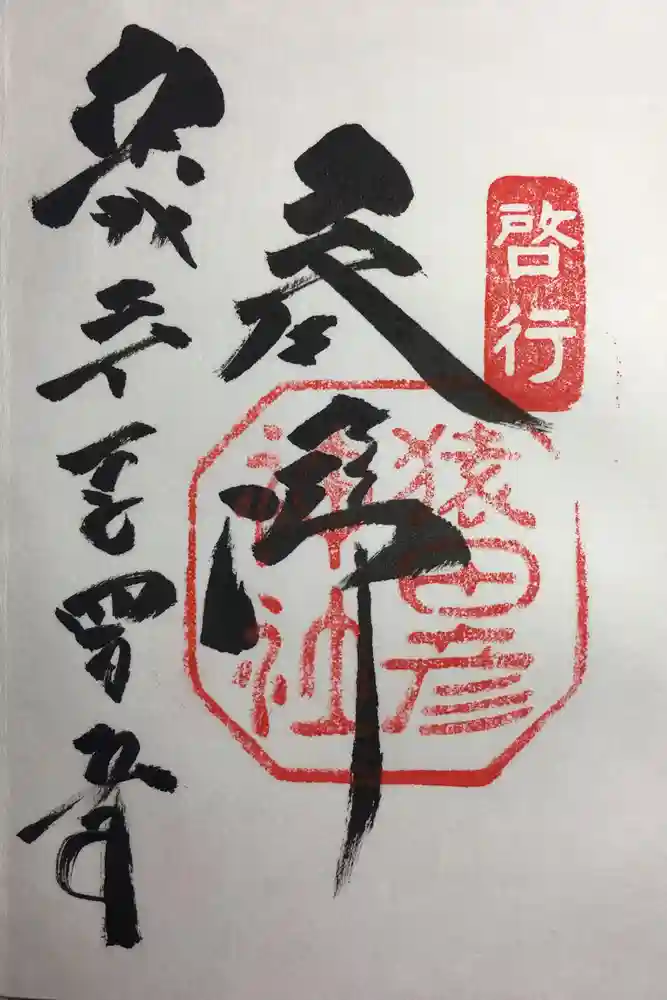 啓行
猿田彦
神社
奉拝
平成三十一年四月